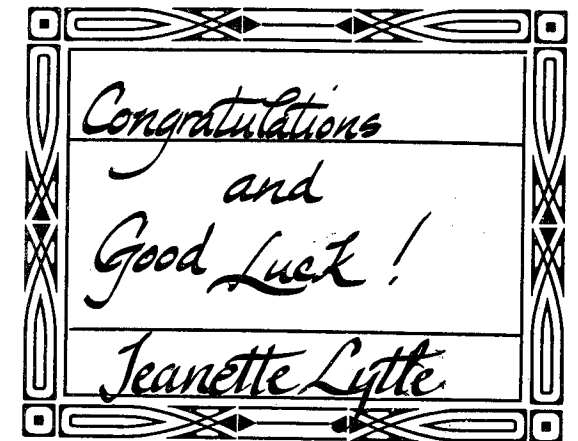 Congratulations
and
Good Luck !
Jeanette Lytle